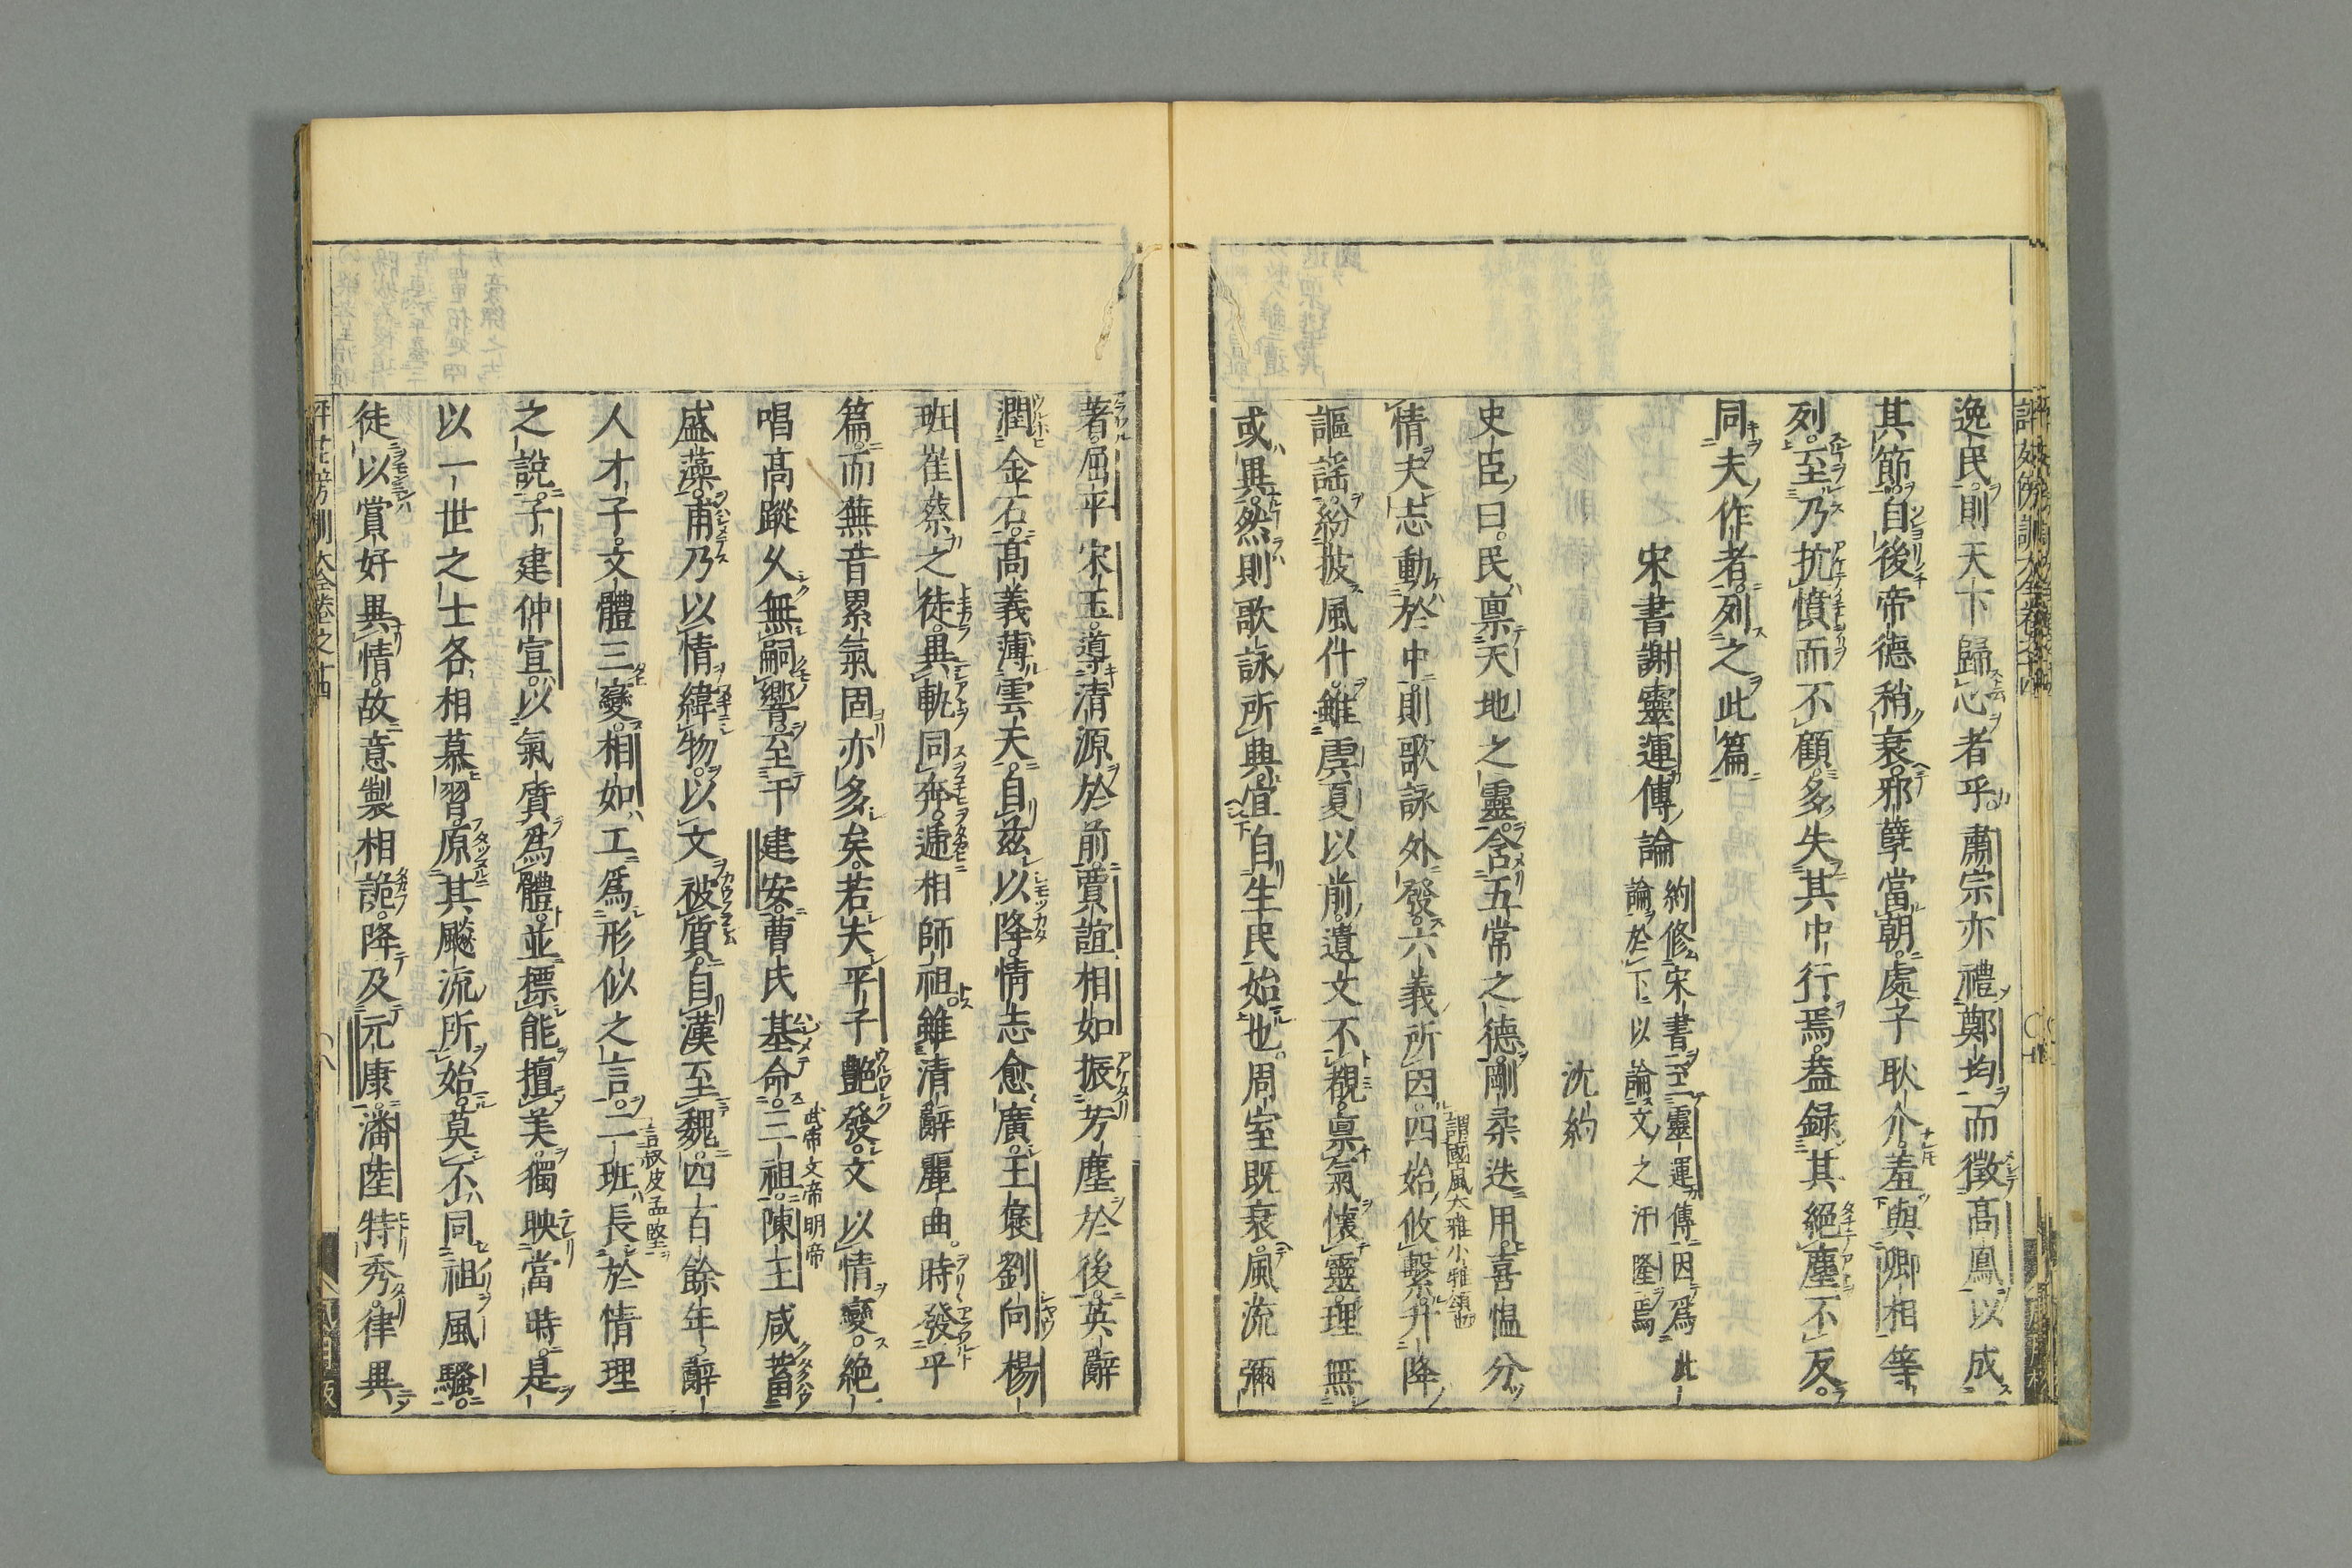 逸民則天下歸心者乎肅宗亦禮鄭均而徵高鳳以成
其節自後帝德稍衰邪孽當朝處子耿介羞與卿相等
列至乃抗憤而不顧多失其中行焉蓋録其絕塵不反
同夫作者列之此篇
宋書謝靈運傳論
約修宋書至靈運傳因爲此
論於下以論文之汙隆焉
沈約
史臣曰民禀天地之靈含五常之德剛柔迭用喜愠分
情夫志動於中則歌詠外發六義所因四始攸繫升降
謂國風大雅小雅頌也
謳謠紛披風什雖虞夏以前遺文不覩禀氣懷靈理無
或異然則歌詠所興宜自生民始也周室既衰風流彌
著屈平宋玉導清源於前賈誼相如振芳塵於後英辭
潤金石高義薄雲天自茲以降情志愈廣王褒劉向楊
班崔蔡之徒異軌同奔遞相師祖雖清辭麗曲時發乎
篇而蕪音累氣固亦多矣若夫平子艷發文以情變絶
唱高蹤久無嗣響至于建安曹氏基命三祖陳王咸蓄
武帝文帝明帝
盛藻甫乃以情緯物以文被質自漢至魏四百餘年辭
人才子文體三變相如工爲形似之言二班長於情理
言叔皮孟堅
之說子建仲宣以氣質爲體並標能擅美獨映當時是
以一世之士各相慕習原其飈流所始莫不同祖風騷
徒以賞好異情故意製相詭降及元康潘陸特秀律異